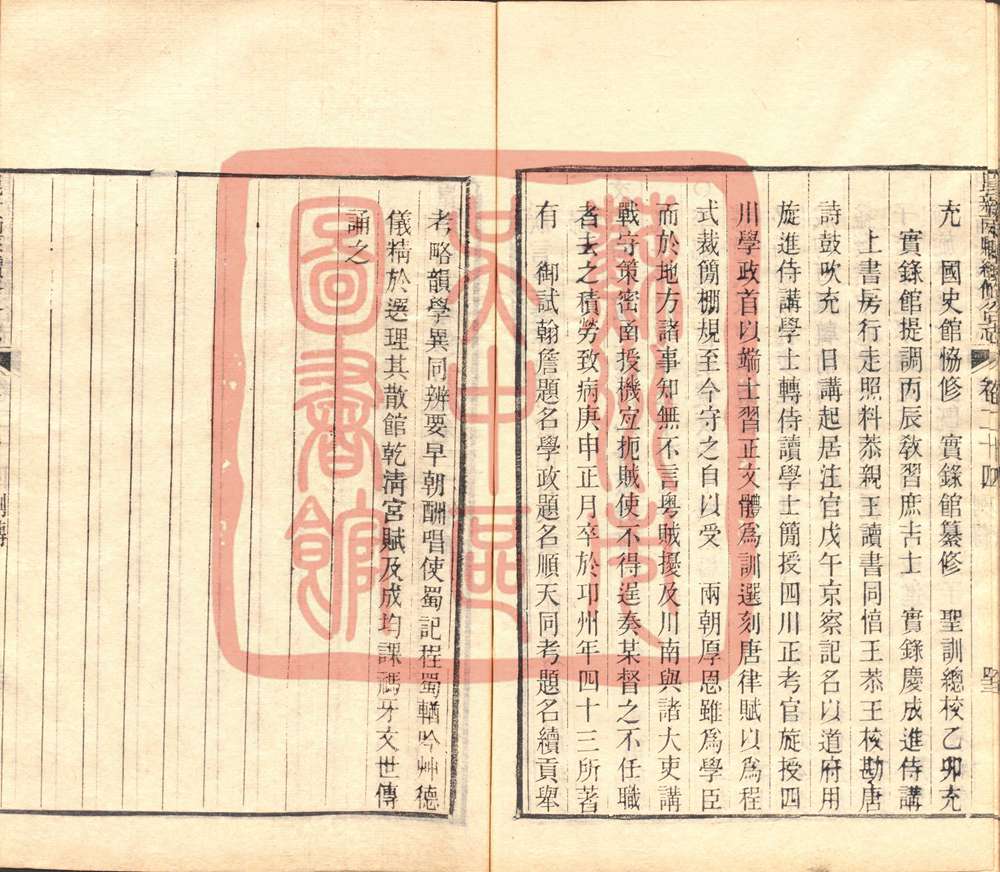 充　國史館協修　實錄館纂修　聖訓總校乙卯充
實錄館提調丙辰教習庶古士　實錄慶成進侍講
上書房行走照料恭親王讀書同愔王恭王核勘唐
詩鼓吹充　日講起居注官戊午京察記名以道府用
旋進侍講學士轉侍讀學士簡授四川正考官旋授四
川學政首以端士習正文體爲訓選刻唐律賦以爲程
式裁陋棚規至今守之自以受　兩朝厚恩雖爲學臣
而於地方諸事知無不言粵賊擾及川南與諸大吏講
戰守策密函授機宜扼賊使不得逞奏某督之不任職
者去之積勞致病庚申正月卒於邛州年四十三所著
有　御試翰詹題名學政題名順天同考題名續貢舉
考略韻學異同辨要早朝酬唱使蜀記程蜀輶吟艸德
儀精於選理其散館乾清宮賦及成均課禡牙文世傳
誦之
卷二十四
列傳
蘇州市吳中區圖書館